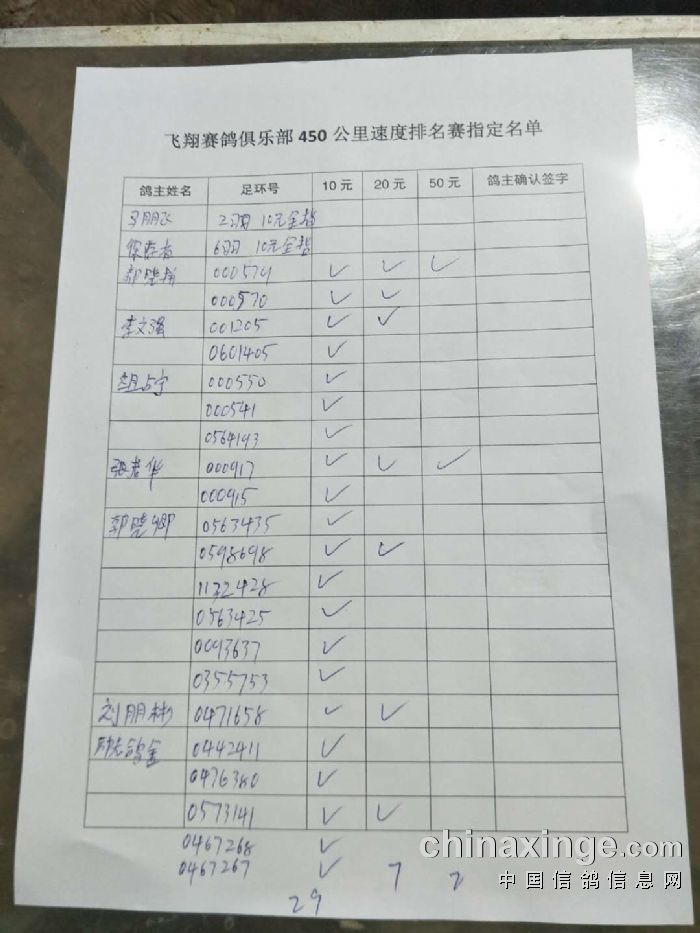 飞翔赛鸽俱乐部450公里速度排名赛指定名单
鸽主姓名 足环号 10元 20元 50元 鸽主确认签字
马朋飞 2羽 10元全指
6羽 10元全指
000579 ✓ ✓ ✓
000570 ✓ ✓
李文强 001205 ✓ ✓
0601405 ✓
胡占宁 000550 ✓
000541 ✓
0564193 ✓
张君华 000917 ✓ ✓ ✓
000915 ✓
郭晓卿 0563435 ✓
0598698 ✓ ✓
1132428 ✓
0563425 ✓
0093637 ✓
0355753 ✓
刘朋彬 0471658 ✓ ✓
0442411 ✓
0476380 ✓
0573141 ✓ ✓
0467268 ✓
0467267 ✓ 7 2
29
chinaxinge.com
中国信鸽信息网